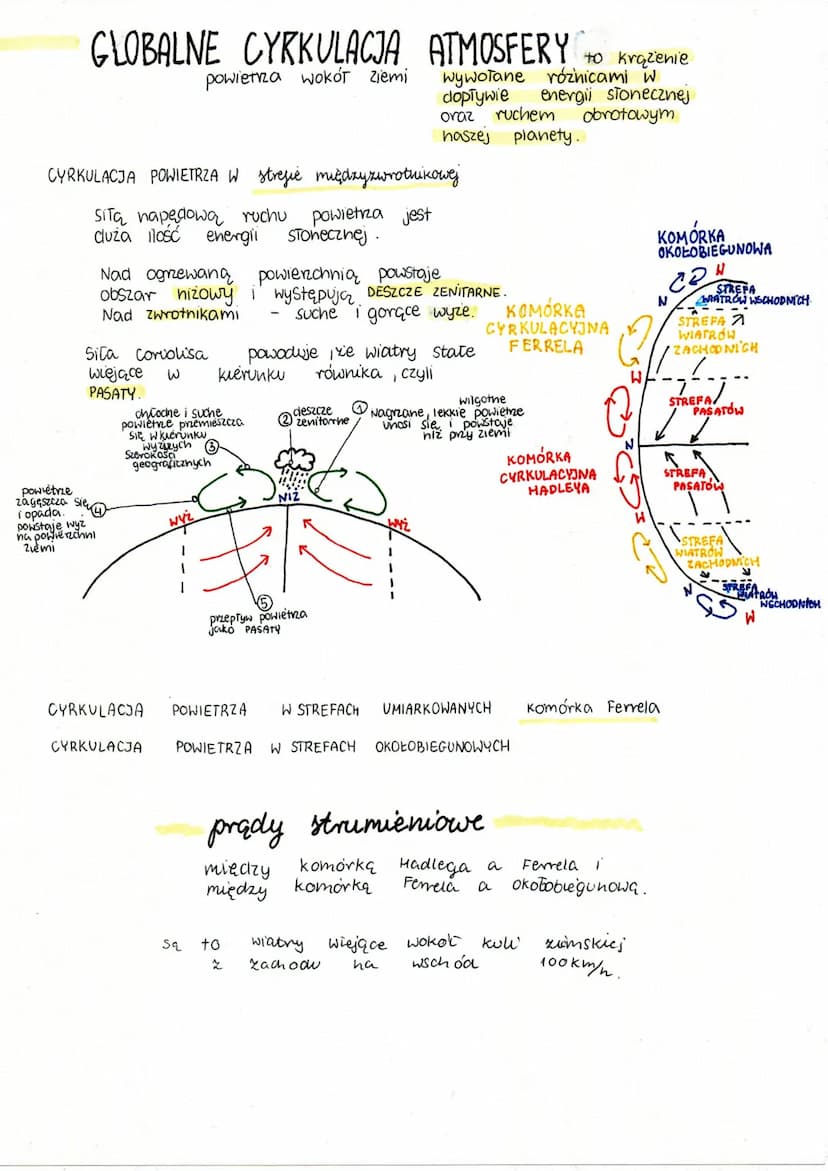 GLOBALNE CYRKULACJA ATMOSFERY to krążenie
powietrza wokół ziemi wywołane różnicami w
dopływie energii słonecznej
oraz ruchem obrotowym
naszej planety.
CYRKULACJA POWIETRZA W strefie międzyzwrotnikowej
Siłą napędową ruchu powietrza jest
duża ilość energii słonecznej.
Nad ogrzewaną powierzchnią powstaje
obszar niżowy i występują DESZCZE ZENITARNE.
Nad zwrotnikami - suche i gorące wyże.
Siła Coriolisa powoduje, że wiatry stałe
wiejące w kierunku równika, czyli
PASATY.
chłodne i suche
powietrze przemieszcza
się w kierunku
wyższych
szerokości
geograficznych
③
② deszcze
zenitarne
① wilgotne
Nagrzane, lekkie powietrze
unosi się i powstaje
niż przy ziemi
powietrze
zagęszcza się
i opada.
powstaje wyż
na powierzchni
ziemi
④
WYŻ
NIŻ
WYŻ
⑤
przepływ powietrza
jako PASATY
KOMÓRKA
OKOŁOBIEGUNOWA
W
N
STREFA
WIATRÓW WSCHODNICH
KOMÓRKA
CYRKULACYJNA
FERRELA
STREFA
WIATRÓW
ZACHODNICH
W
STREFA
PASATÓW
N
KOMÓRKA
CYRKULACYJNA
HADLEYA
STREFA
PASATÓW
W
STREFA
WIATRÓW
ZACHODNICH
N
STREFA
WIATRÓW
WSCHODNICH
W
CYRKULACJA POWIETRZA W STREFACH UMIARKOWANYCH komórka Ferrela
CYRKULACJA POWIETRZA W STREFACH OKOŁOBIEGUNOWYCH
prądy strumieniowe
między komórką Hadlega a Ferrela i
między komórką Ferrela a okołobiegunową.
Są to wiatry wiejące wokół kuli ziemskiej
z zachodu na wschód 100km/h.